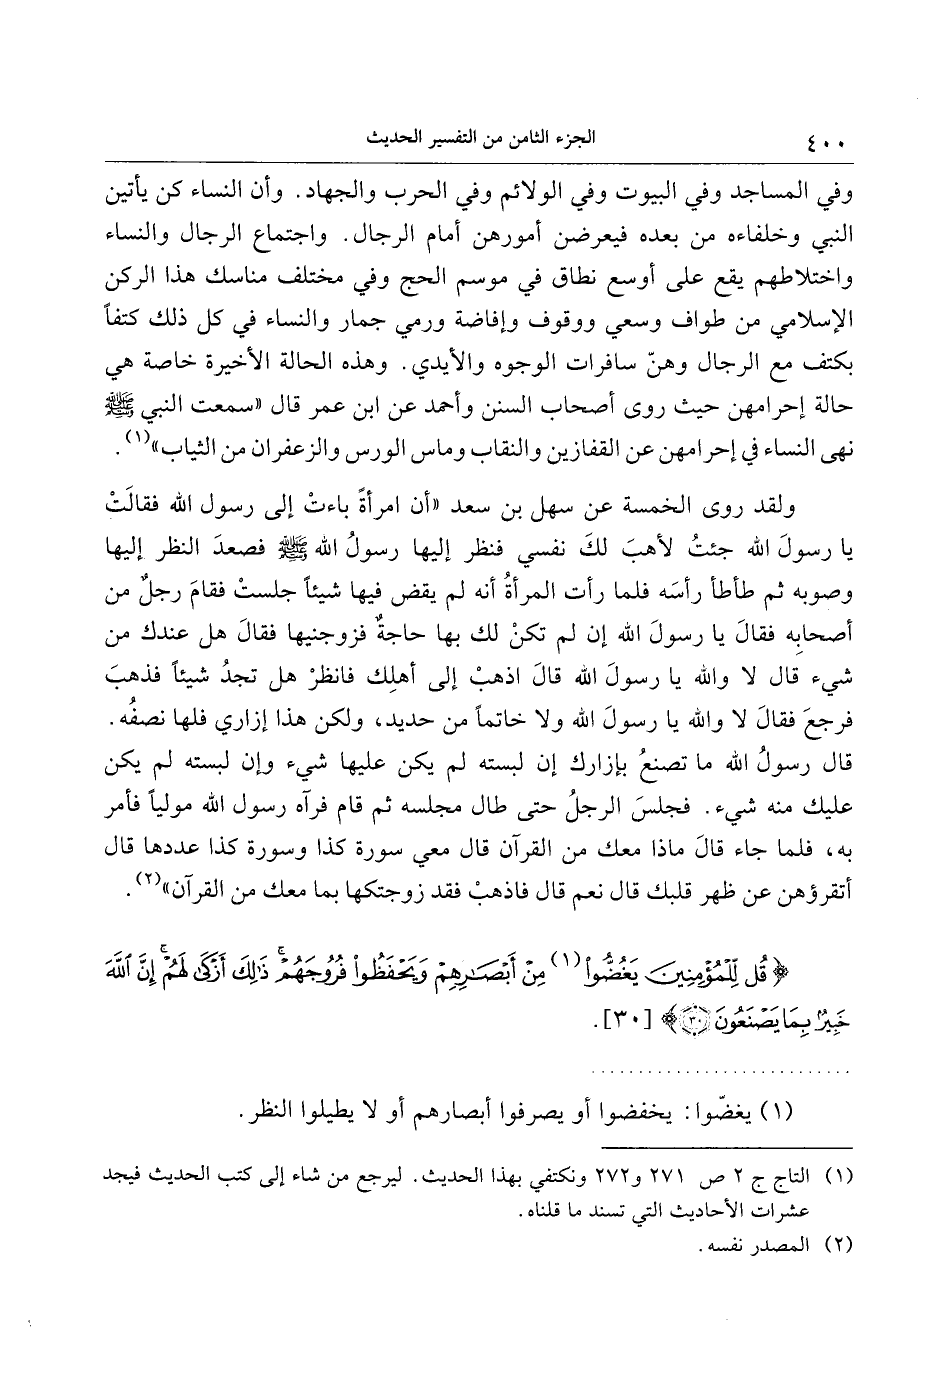 ٤٠٠ الجزء الثامن من التفسير الحديث
وفي المساجد وفي البيوت وفي الولائم وفي الحرب والجهاد. وأن النساء كن يأتين
النبي وخلفاءه من بعده فيعرضن أمورهن أمام الرجال. واجتماع الرجال والنساء
واختلاطهم يقع على أوسع نطاق في موسم الحج وفي مختلف مناسك هذا الركن
الإسلامي من طواف وسعي ووقوف وإفاضة ورمي جمار والنساء في كل ذلك كتفاً
بكتف مع الرجال وهنّ سافرات الوجوه والأيدي. وهذه الحالة الأخيرة خاصة هي
حالة إحرامهن حيث روى أصحاب السنن وأحمد عن ابن عمر قال «سمعت النبي ﷺ
نهى النساء في إحرامهن عن القفازين والنقاب وماس الورس والزعفران من الثياب»(١).
ولقد روى الخمسة عن سهل بن سعد «أن امرأةً باءتْ إلى رسول الله فقالَتْ
يا رسولَ الله جئتُ لأهبَ لكَ نفسي فنظر إليها رسولُ الله ﷺ فصعدَ النظر إليها
وصوبه ثم طأطأ رأسَه فلما رأت المرأةُ أنه لم يقض فيها شيئاً جلستْ فقامَ رجلٌ من
أصحابِه فقالَ يا رسولَ الله إن لم تكنْ لك بها حاجةٌ فزوجنيها فقالَ هل عندك من
شيء قال لا والله يا رسولَ الله قالَ اذهبْ إلى أهلِك فانظرْ هل تجدُ شيئاً فذهبَ
فرجعَ فقالَ لا والله يا رسولَ الله ولا خاتماً من حديد، ولكن هذا إزاري فلها نصفُه.
قال رسولُ الله ما تصنعُ بإزارك إن لبسته لم يكن عليها شيء وإن لبسته لم يكن
عليك منه شيء. فجلسَ الرجلُ حتى طال مجلسه ثم قام فرآه رسول الله مولياً فأمر
به، فلما جاء قالَ ماذا معك من القرآن قال معي سورة كذا وسورة كذا عددها قال
أتقرؤهن عن ظهر قلبك قال نعم قال فاذهبْ فقد زوجتكها بما معك من القرآن»(٢).
﴿قُل لِّلْمُؤْمِنِينَ يَغُضُّوا۟(١) مِنْ أَبْصَٰرِهِمْ وَيَحْفَظُوا۟ فُرُوجَهُمْ ۚ ذَٰلِكَ أَزْكَىٰ لَهُمْ ۚ إِنَّ ٱللَّهَ
خَبِيرٌۢ بِمَا يَصْنَعُونَ ٣٠﴾ [٣٠].
(١) يغضّوا: يخفضوا أو يصرفوا أبصارهم أو لا يطيلوا النظر.
(١) التاج ج ٢ ص ٢٧١ و٢٧٢ ونكتفي بهذا الحديث. ليرجع من شاء إلى كتب الحديث فيجد
عشرات الأحاديث التي تسند ما قلناه.
(٢) المصدر نفسه.